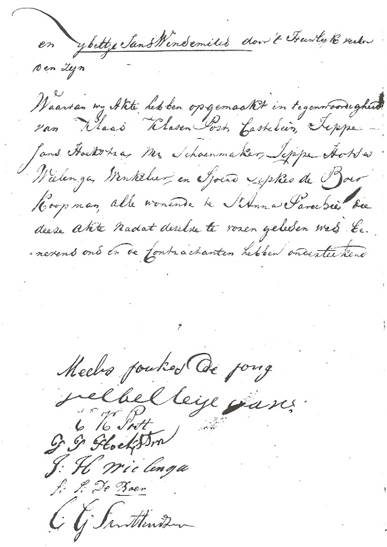 en Ijbeltje Jans Windemulis door 't Huwelijk verbon
den zijn
Waarvan wij Akte hebben opgemaakt in tegenwoordigheid
van Klaas Klasen Post, Castelein, Jeppe
Jans Hoekstra, Mr Schoenmaker, Jeppe
Wielinga, Winkelier, en Sjoerd Sipkes de Boer
Koopman, alle wonende te St Anna Parochie die
deeze akte nadat deselve te voren gelesen was be-
nevens ons en de Contractanten hebben ondertekend
Meeles foukes de jong
jans
K Post
J J Hoekstra
J: H wielinga
S: S: De Boer